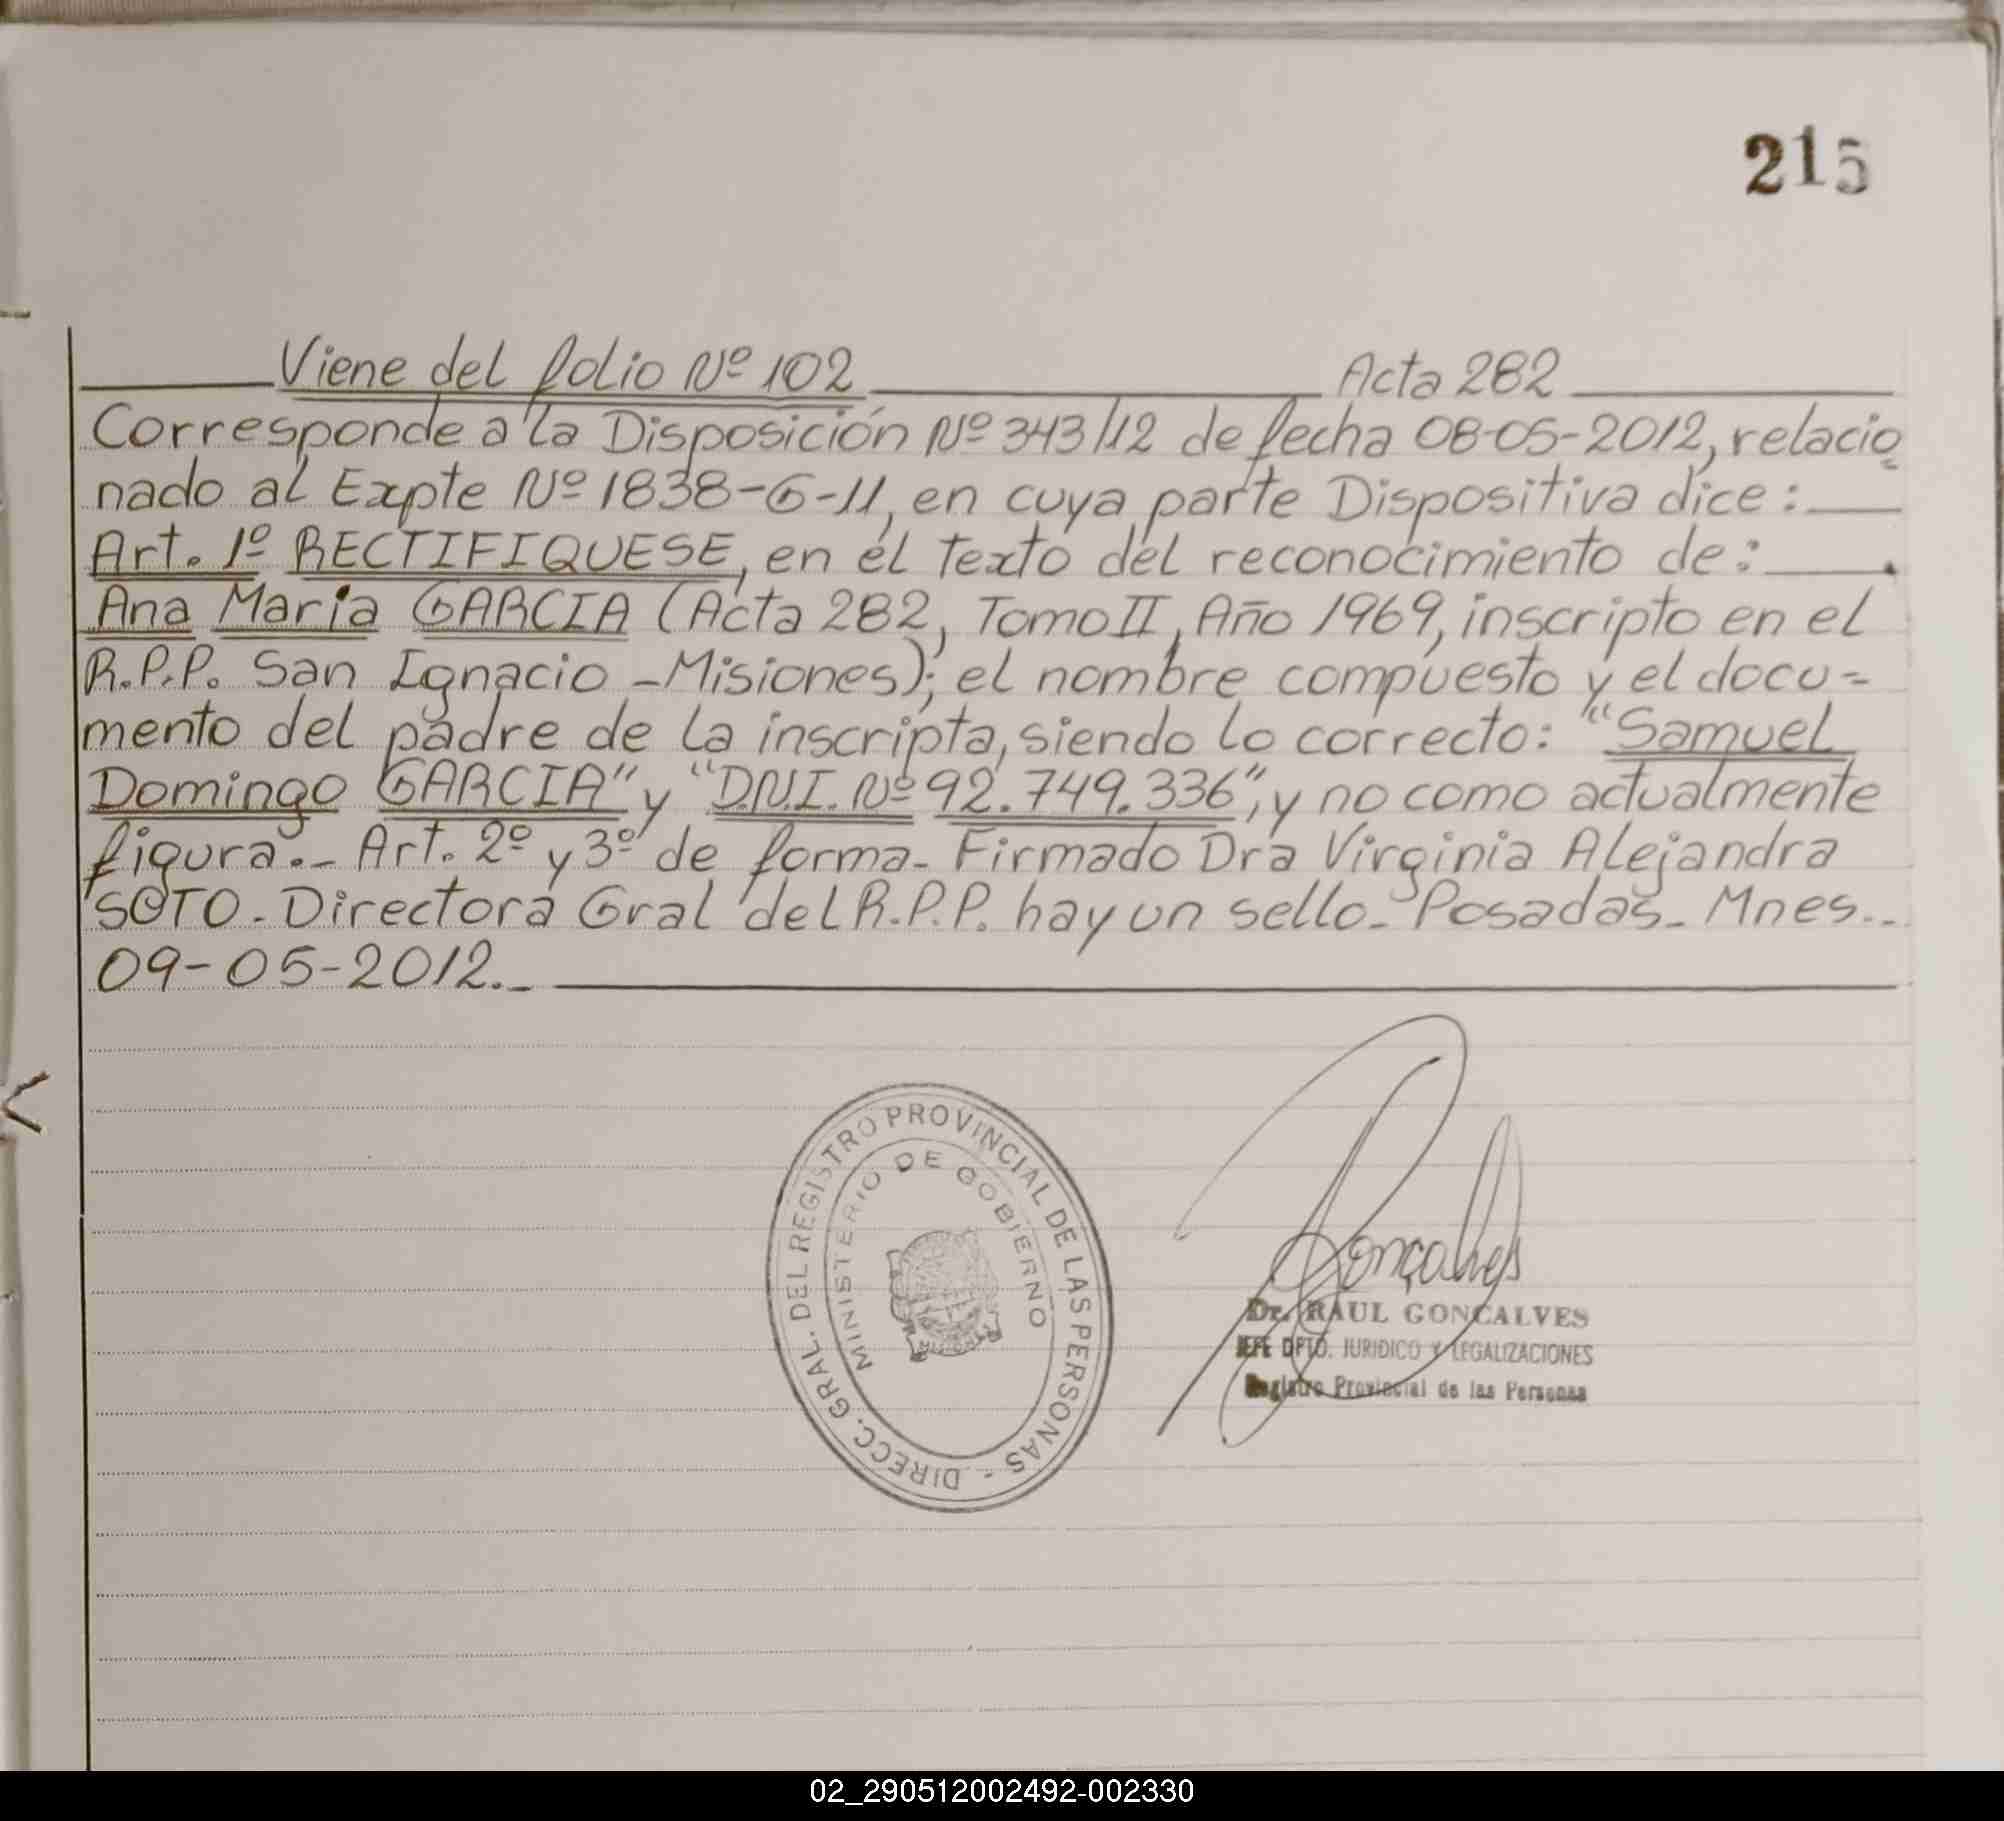 215
Viene del folio Nº 102 Acta 282
Corresponde a la Disposición Nº 343/12 de fecha 08-05-2012, relacio
nado al Expte Nº 1838-G-11, en cuya parte Dispositiva dice:
Art. 1º RECTIFIQUESE, en el texto del reconocimiento de:
Ana Maria GARCIA (Acta 282, Tomo II, Año 1969, inscripto en el
R.P.P. San Ignacio - Misiones); el nombre compuesto y el docu-
mento del padre de la inscripta, siendo lo correcto: "Samuel
Domingo GARCIA" y "D.N.I. Nº 92.749.336", y no como actualmente
figura.- Art. 2º y 3º de forma- Firmado Dra Virginia Alejandra
SOTO- Directora Gral del R.P.P. hay un sello- Posadas- Mnes.-
09-05-2012.-
DIRECC. GRAL. DEL REGISTRO PROVINCIAL DE LAS PERSONAS -
MINISTERIO DE GOBIERNO
MISIONES
Gonçalves
Dr. RAUL GONCALVES
JEFE DPTO. JURIDICO Y LEGALIZACIONES
Registro Provincial de las Personas
02_290512002492-002330